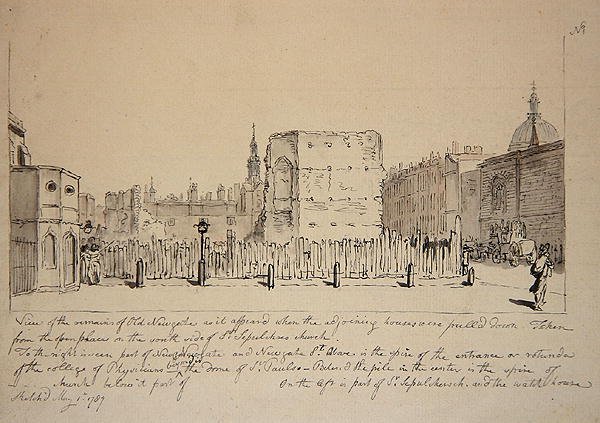 No
View of the remains of Old Newgate as it appeard when the adjoining houses were pulled down Taken
from the open place on the south side of St. Sepulchres church.
To the right is seen part of New Newgate and Newgate St. Above is the spire of the entrance or rotunda
of the college of Physicians the dome of St. Pauls - the pile in the center is the spire of
church below it part of On the left is part of St. Sepulchers ch. and the watch house
Sketch'd May 1st 1789